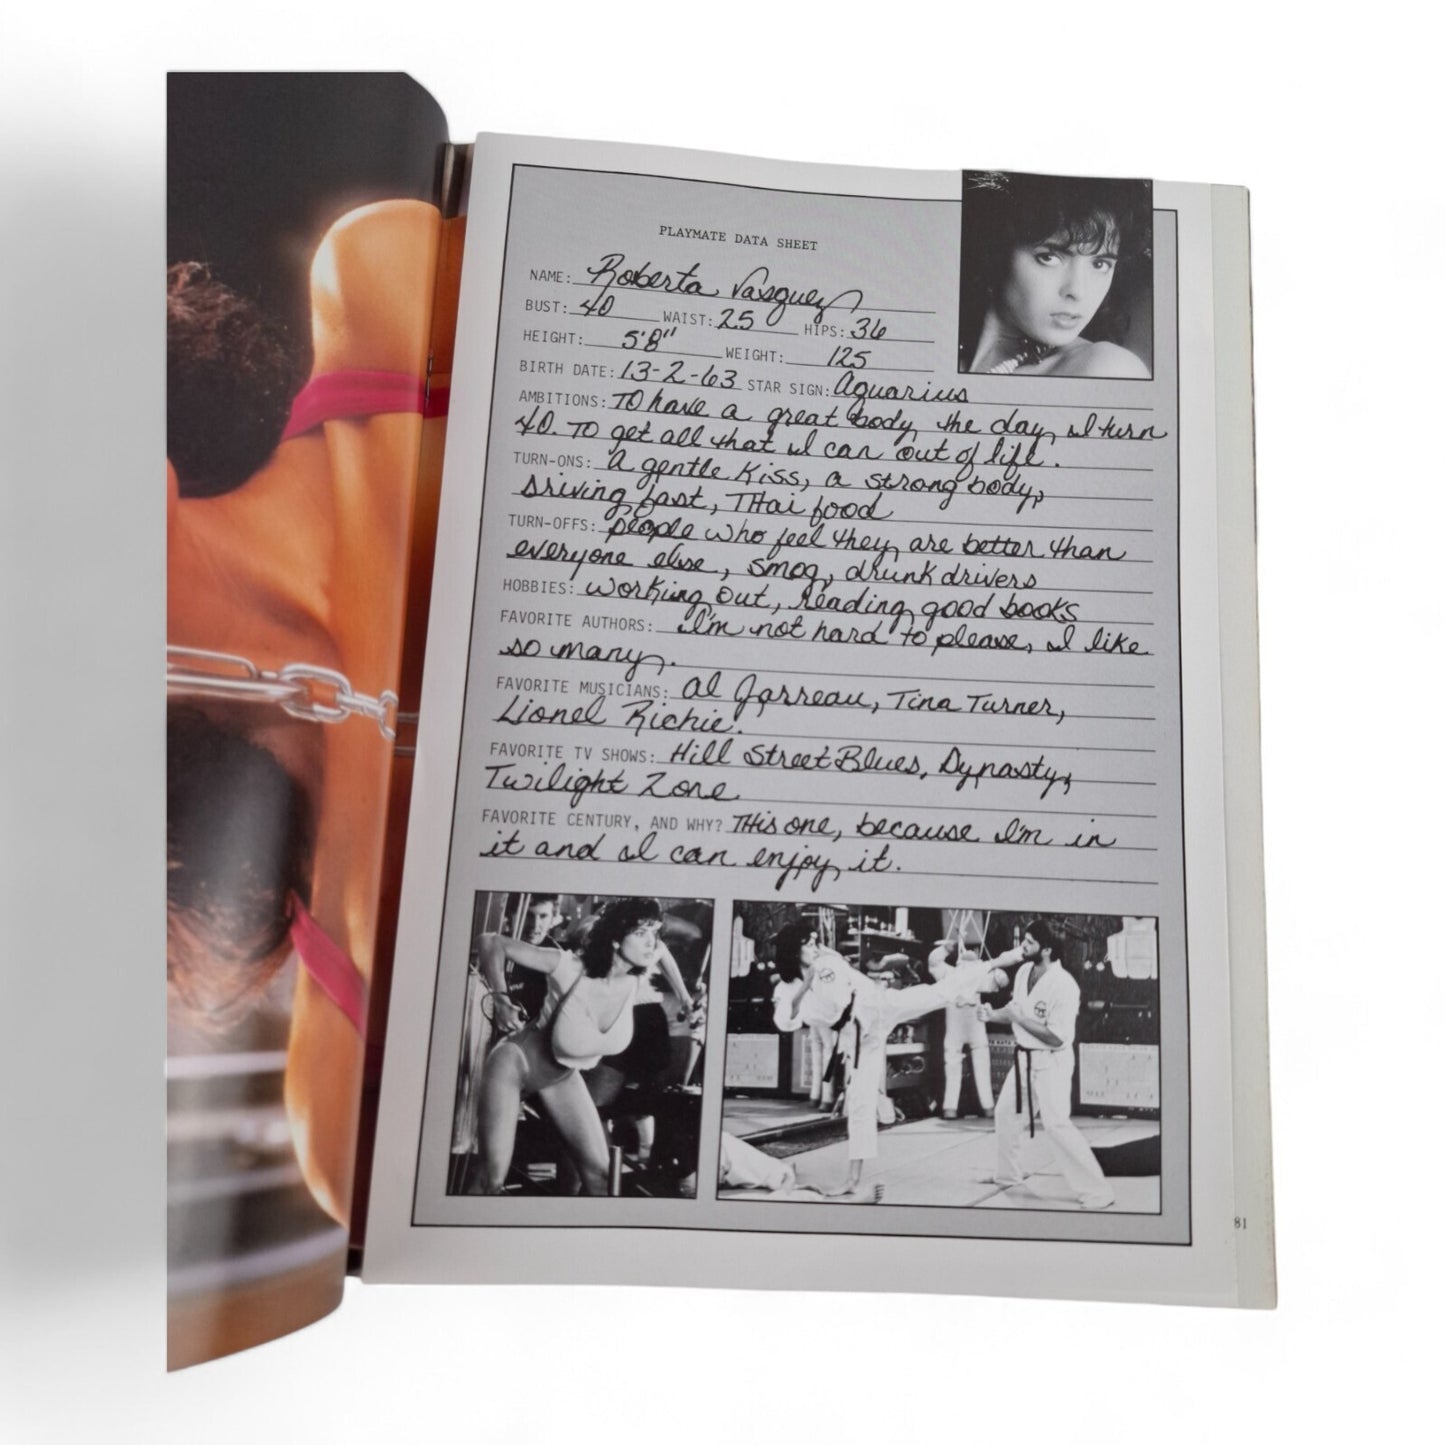 PLAYMATE DATA SHEET
NAME: Roberta Vasquez
BUST: 40 WAIST: 25 HIPS: 36
HEIGHT: 5'8" WEIGHT: 125
BIRTH DATE: 13-2-63 STAR SIGN: Aquarius
AMBITIONS: To have a great body the day I turn
40. To get all that I can out of life.
TURN-ONS: A gentle kiss, a strong body,
driving fast, THai food
TURN-OFFS: people who feel they are better than
everyone else, smog, drunk drivers
HOBBIES: working out, reading good books
FAVORITE AUTHORS: I'm not hard to please, I like
so many.
FAVORITE MUSICIANS: Al Jarreau, Tina Turner,
Lionel Richie.
FAVORITE TV SHOWS: Hill Street Blues, Dynasty,
Twilight Zone
FAVORITE CENTURY, AND WHY? THis one, because I'm in
it and I can enjoy it.
81